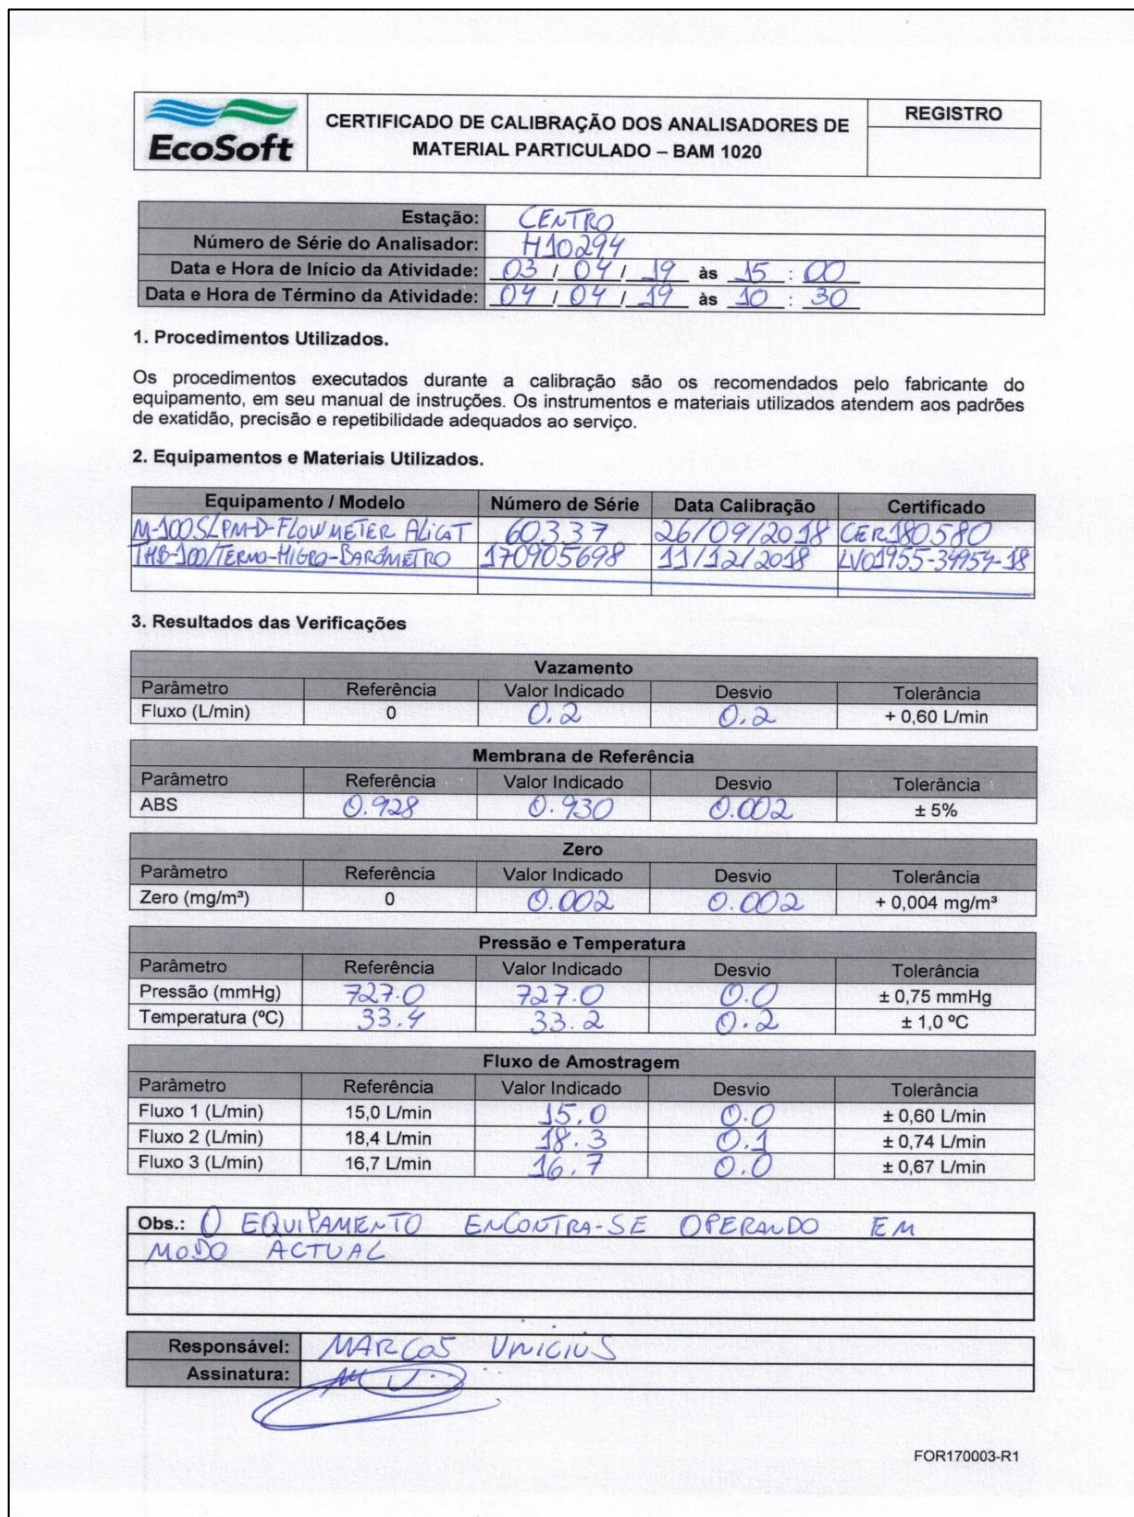 EcoSoft
CERTIFICADO DE CALIBRAÇÃO DOS ANALISADORES DE
MATERIAL PARTICULADO – BAM 1020
REGISTRO
Estação: CENTRO
Número de Série do Analisador: H10294
Data e Hora de Início da Atividade: 03 / 04 / 19 às 15 : 00
Data e Hora de Término da Atividade: 04 / 04 / 19 às 10 : 30
1. Procedimentos Utilizados.
Os procedimentos executados durante a calibração são os recomendados pelo fabricante do
equipamento, em seu manual de instruções. Os instrumentos e materiais utilizados atendem aos padrões
de exatidão, precisão e repetibilidade adequados ao serviço.
2. Equipamentos e Materiais Utilizados.
Equipamento / Modelo Número de Série Data Calibração Certificado
M-100SLPM-D-FLOWMETER ALICAT 60337 26/09/2018 CER180580
THB-100/TERMO-HIGRO-BARÔMETRO 170905698 11/12/2018 LV01955-34954-18
3. Resultados das Verificações
Vazamento
Parâmetro Referência Valor Indicado Desvio Tolerância
Fluxo (L/min) 0 0.2 0.2 + 0,60 L/min
Membrana de Referência
Parâmetro Referência Valor Indicado Desvio Tolerância
ABS 0.928 0.930 0.002 ± 5%
Zero
Parâmetro Referência Valor Indicado Desvio Tolerância
Zero (mg/m³) 0 0.002 0.002 + 0,004 mg/m³
Pressão e Temperatura
Parâmetro Referência Valor Indicado Desvio Tolerância
Pressão (mmHg) 727.0 727.0 0.0 ± 0,75 mmHg
Temperatura (ºC) 33.4 33.2 0.2 ± 1,0 ºC
Fluxo de Amostragem
Parâmetro Referência Valor Indicado Desvio Tolerância
Fluxo 1 (L/min) 15,0 L/min 15.0 0.0 ± 0,60 L/min
Fluxo 2 (L/min) 18,4 L/min 18.3 0.1 ± 0,74 L/min
Fluxo 3 (L/min) 16,7 L/min 16.7 0.0 ± 0,67 L/min
Obs.: O EQUIPAMENTO ENCONTRA-SE OPERANDO EM
MODO ACTUAL
Responsável: MARCOS VINICIUS
Assinatura:
FOR170003-R1